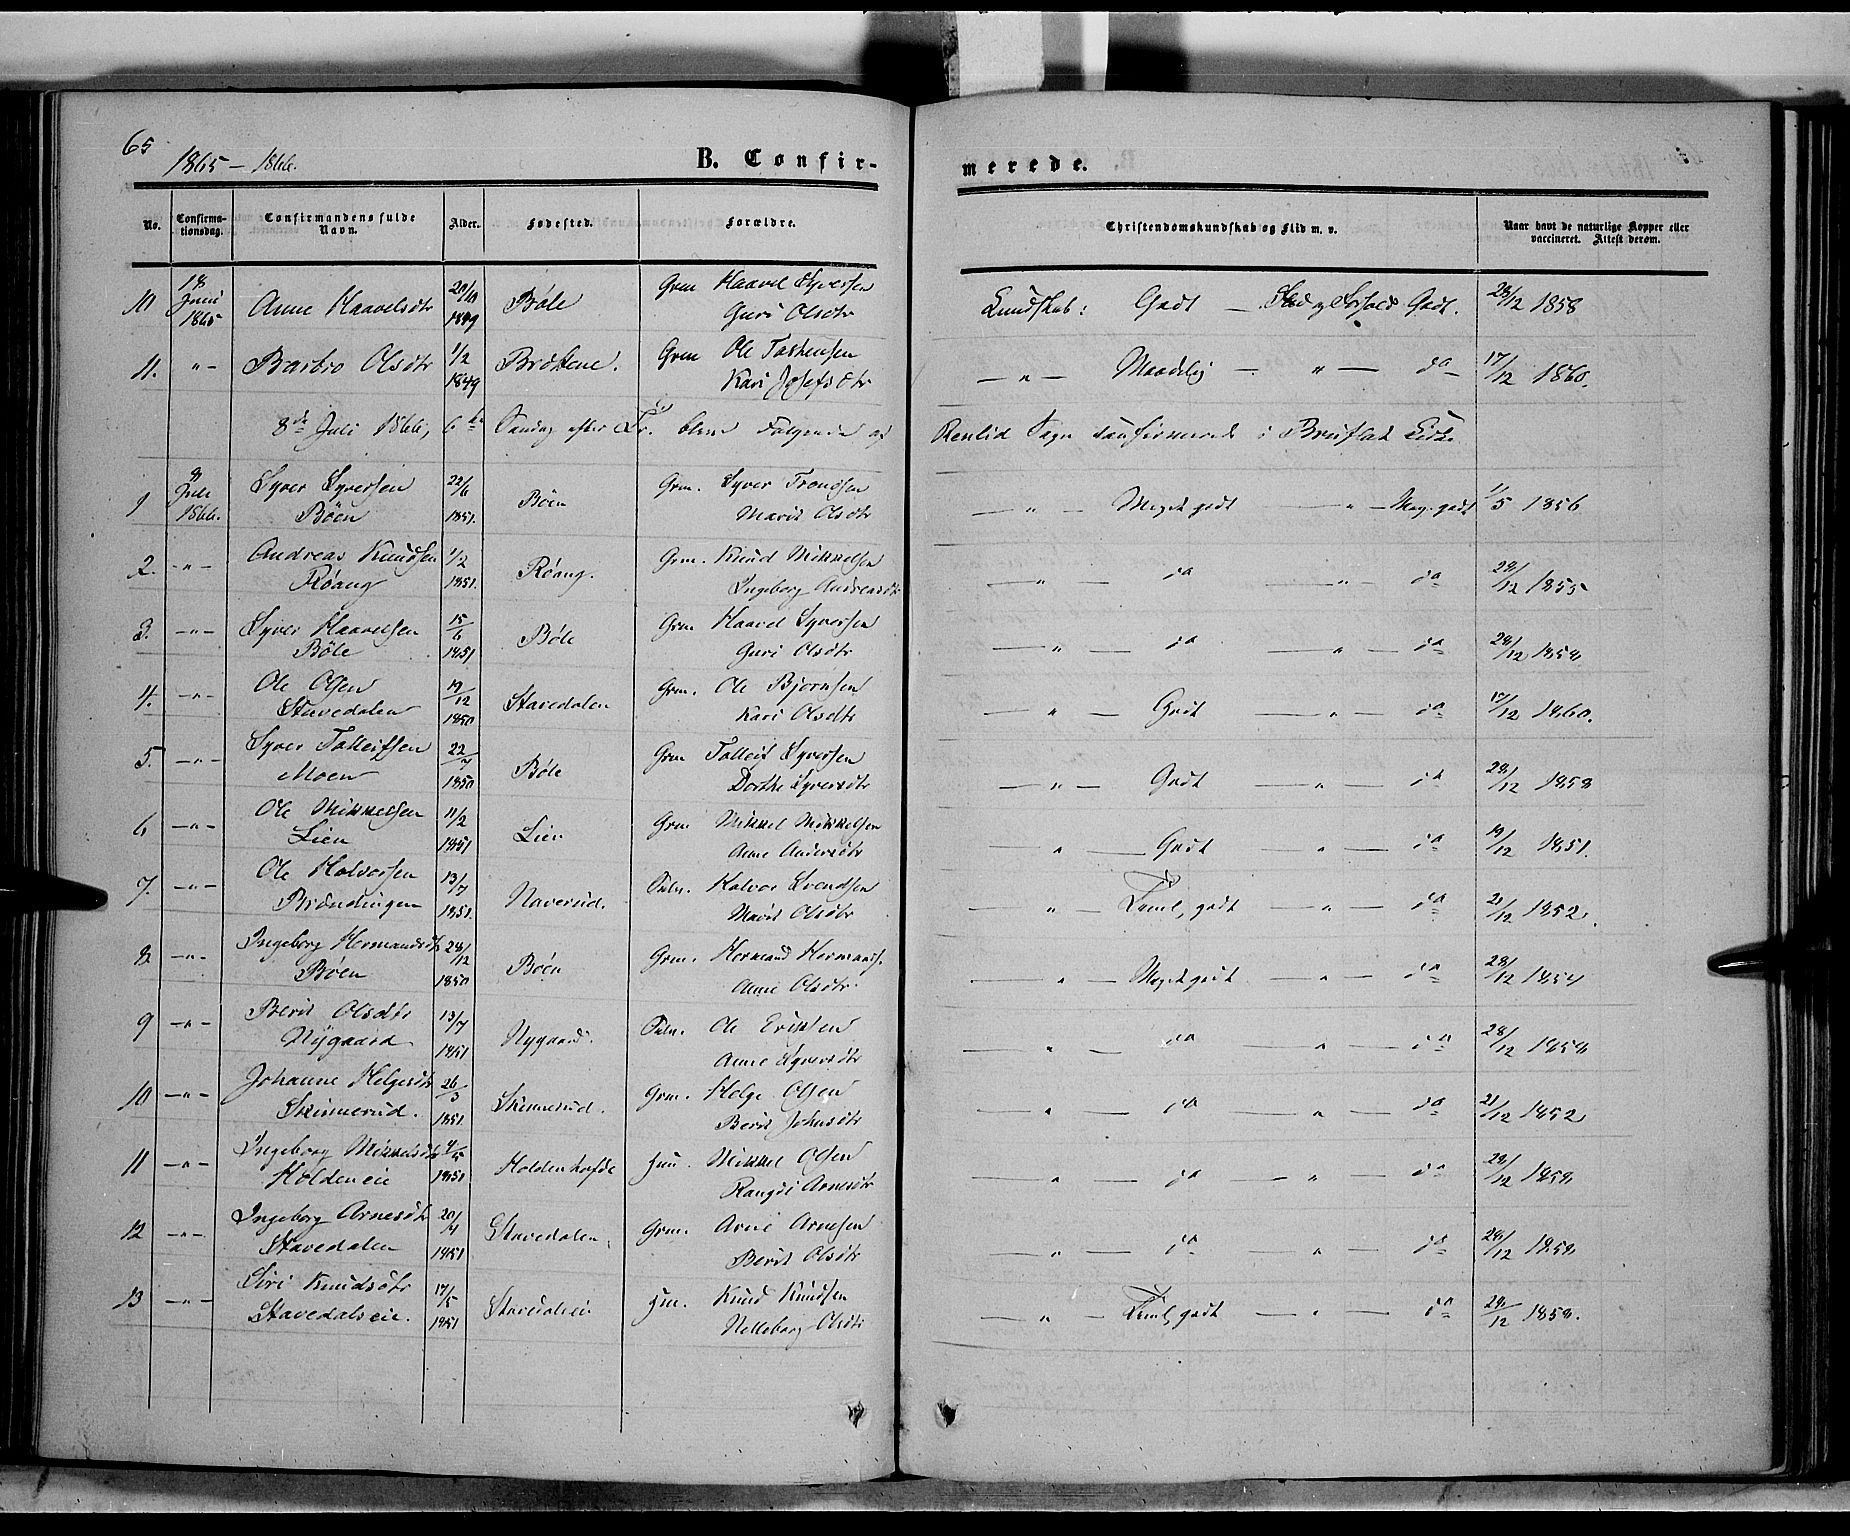 65
1865 – 1866.
B. Confirmerede.
No. | Confirmationsdag. | Confirmandens fulde Navn. | Alder. | Fødested. | Forældre. | Christendomskundskab og Flid m. v. | Naar havt de naturlige Kopper eller vaccineret. Attest derom.
10 | 18 Juni 1865 | Anne Haavelsdtr | 20/10 1849 | Böle | Grm Haavel Syversen Guri Olsdtr | Kundskab: Godt — Flid og Forhold Godt. | 28/12 1858
11. | " | Barbro Olsdtr | 1/2 1849 | Bråtene. | Grm Ole Tostensen Kari Josefsdtr | — " — Maadelig — " — do | 17/12 1860.
8de Juli 1866, 6te Søndag efter Tr. bleve Følgende af Renlid Sogn confirmerede i Bruflat Kirke.
1 | 8 Juli 1866. | Syver Syversen Böen | 22/6 1851. | Böen | Grm. Syver Trondsen Marit Olsdtr | — " — Meget godt — " — Meg. godt | 1/5 1856
2. | — " — | Andreas Knudsen Röang | 1/2 1851. | Röang. | Grm. Knud Mikkelsen Ingeborg Andreasdtr | — " — do — " — do | 28/12 1855
3. | — " — | Syver Haavelsen Böle | 15/6 1851 | Böle | Grm Haavel Syversen Guri Olsdtr | — " — do — " — do | 28/12 1858
4. | — " — | Ole Olsen Stavedalen | 19/12 1850 | Stavedalen | Grm. Ole Bjornsen Kari Olsdtr | — " — Godt — " — do | 17/12 1860.
5. | — " — | Syver Tolleifsen Moen | 22/7 1850 | Böle | Grm Tolleif Syversen Dorthe Syversdtr | — " — Godt — " — do | 28/12 1858
6 | — " — | Ole Mikkelsen Lien | 11/2 1851 | Lien | Grm Mikkel Mikkelsen Anne Andersdtr | " — Godt — " — do | 19/12 1851.
7. | — " — | Ole Halvorsen Brændingen | 13/7 1851. | Naverud. | Inds. Halvor Svendsen Marit Olsdtr | " — Teml. godt — " — do | 21/12 1852.
8 | — " — | Ingeborg Hermandsdtr Böen | 28/12 1850 | Böen | Grm. Hermand Hermands. Anne Olsdtr | — " — Meget godt — " — do | 28/12 1854
9 | — " — | Berit Olsdtr Nygaard | 13/7 1851 | Nygaard. | Inds. Ole Eriksen Anne Syversdtr | — " — do — " — do | 28/12 1858
10 | — " — | Johanne Helgesdtr Skinnerud. | 26/3 1851. | Skinnerud. | Grm. Helge Olsen Berit Johnsdtr | — " — do — " — do | 21/12 1852
11 | — " — | Ingeborg Mikkelsdtr Holdeneie | 4/5 1851 | | Hm. Mikkel Olsen Rangdi Arnesdtr | — " — do — " — do | 28/12 1858
12 | — " — | Ingeborg Arnesdtr Stavedalen | 20/4 1851 | Stavedalen. | Grm. Arne Arnesen Berit Olsdtr | — " — do — " — do | 28/12 1858
13 | — " — | Siri Knudsdtr Stavedalseie. | 17/5 1851 | Stavedalseie | Hm. Knud Knudsen Olsdtr | — " — Teml. godt — " — do | 28/12 1858.